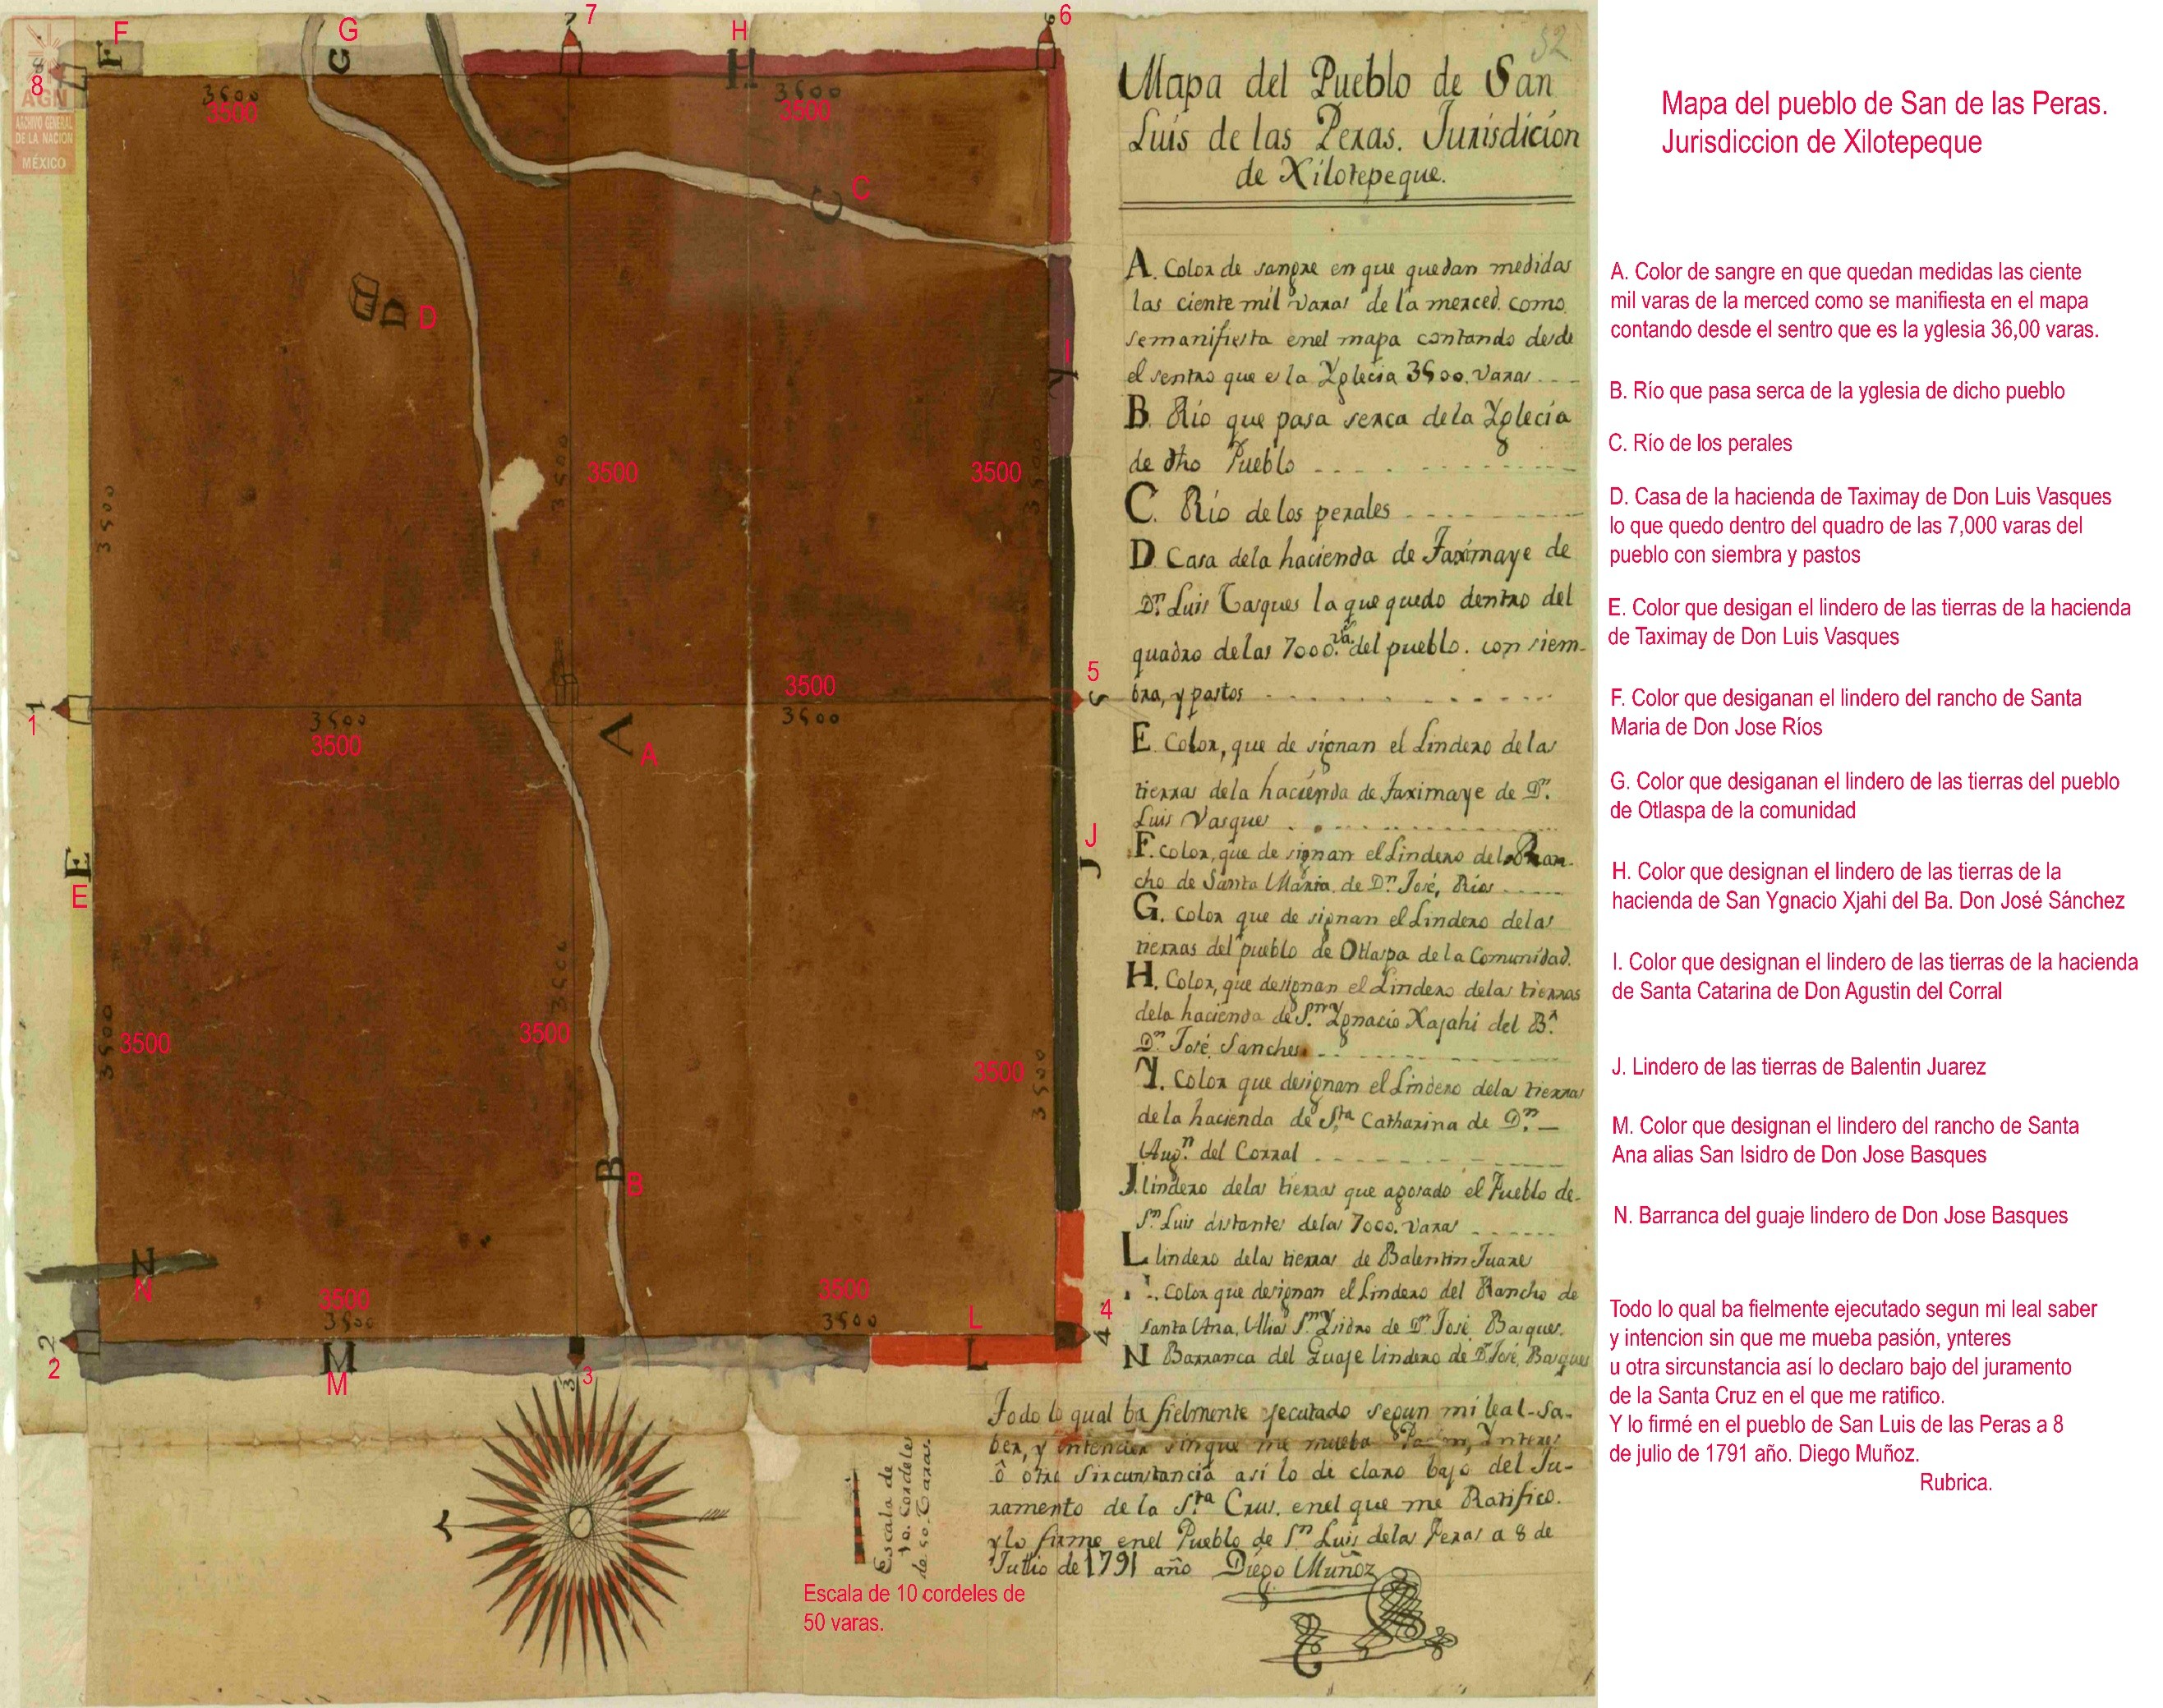 F
G
7
H
6
8
F
G
7
H
6
8
AGN
ARCHIVO GENERAL
DE LA NACIÓN
MÉXICO
3500
3500
3500
3500
C
C
D
D
I
Y
3500
3500
3500
3500
3500
3500
1
1
3500
3500
3500
3500
5
5
A
A
E
E
J
J
3500
3500
3500
3500
3500
3500
B
B
N
N
3500
3500
3500
3500
2
2
M
M
3
3
L
L
4
4
Escala de
10. Cordeles
de 50. Varas.
Escala de 10 cordeles de
50 varas.
52
Mapa del Pueblo de San
Luis de las Peras. Jurisdicion
de Xilotepeque.
A. Color de sangre en que quedan medidas
las ciente mil varas de la merced. como
semanifiesta enel mapa contando desde
el sentro que es la Yglecia 3500. varas
B. Río que pasa serca dela Yglecia
de dho Pueblo
C. Río de los perales
D Casa dela hacienda de Taximaye de
Dn. Luis Vasques la que quedo dentro del
quadro delas 7000. vs. del pueblo. con siem-
bra, y pastos
E. Color, que de signan el Lindero de las
tierras dela hacienda de taximaye de Dn.
Luis Vasques
F. color, que de signan el Lindero del Ran-
cho de Santa Maria. de Dn. José, Rios
G. Color que de signan el Lindero de las
tierras del pueblo de Otlaspa de la Comunidad.
H. Color, que designan el Lindero delas tierras
dela hacienda de Sn. Ygnacio Xajahi del Br.
Dn. José Sanches
Y. Color que designan el Lindero dela tierras
de la hacienda de Sta. Catharina de Dn.
Augn. del Corral
J. lindero delas tierras que agosado el Pueblo de-
Sn. Luis distante delas 7000. varas
L lindero delas tierras de Balentin Juares
Color que designan el Lindero del Rancho de
Santa Ana. Alias Sn. Ysidro de Dn. José Basques.
N Barranca del Guaje lindero de Dn. José, Basques
Todo lo qual ba fielmente ejecutado segun mi leal-Sa-
ber, y intencion sinque me mueba Yntres
ô otra Sircunstancia así lo de claro bajo del Ju-
ramento de la Sta. Crus. enel que me Ratifico.
y lo firme enel Pueblo de Sn. Luis delas Peras a 8 de
Jullio de 1791 año Diego Muñoz
Mapa del pueblo de San de las Peras.
Jurisdiccion de Xilotepeque
A. Color de sangre en que quedan medidas las ciente
mil varas de la merced como se manifiesta en el mapa
contando desde el sentro que es la yglesia 36,00 varas.
B. Río que pasa serca de la yglesia de dicho pueblo
C. Río de los perales
D. Casa de la hacienda de Taximay de Don Luis Vasques
lo que quedo dentro del quadro de las 7,000 varas del
pueblo con siembra y pastos
E. Color que desigan el lindero de las tierras de la hacienda
de Taximay de Don Luis Vasques
F. Color que desiganan el lindero del rancho de Santa
Maria de Don Jose Ríos
G. Color que desiganan el lindero de las tierras del pueblo
de Otlaspa de la comunidad
H. Color que designan el lindero de las tierras de la
hacienda de San Ygnacio Xjahi del Ba. Don José Sánchez
I. Color que designan el lindero de las tierras de la hacienda
de Santa Catarina de Don Agustin del Corral
J. Lindero de las tierras de Balentin Juarez
M. Color que designan el lindero del rancho de Santa
Ana alias San Isidro de Don Jose Basques
N. Barranca del guaje lindero de Don Jose Basques
Todo lo qual ba fielmente ejecutado segun mi leal saber
y intencion sin que me mueba pasión, ynteres
u otra sircunstancia así lo declaro bajo del juramento
de la Santa Cruz en el que me ratifico.
Y lo firmé en el pueblo de San Luis de las Peras a 8
de julio de 1791 año. Diego Muñoz.
Rubrica.